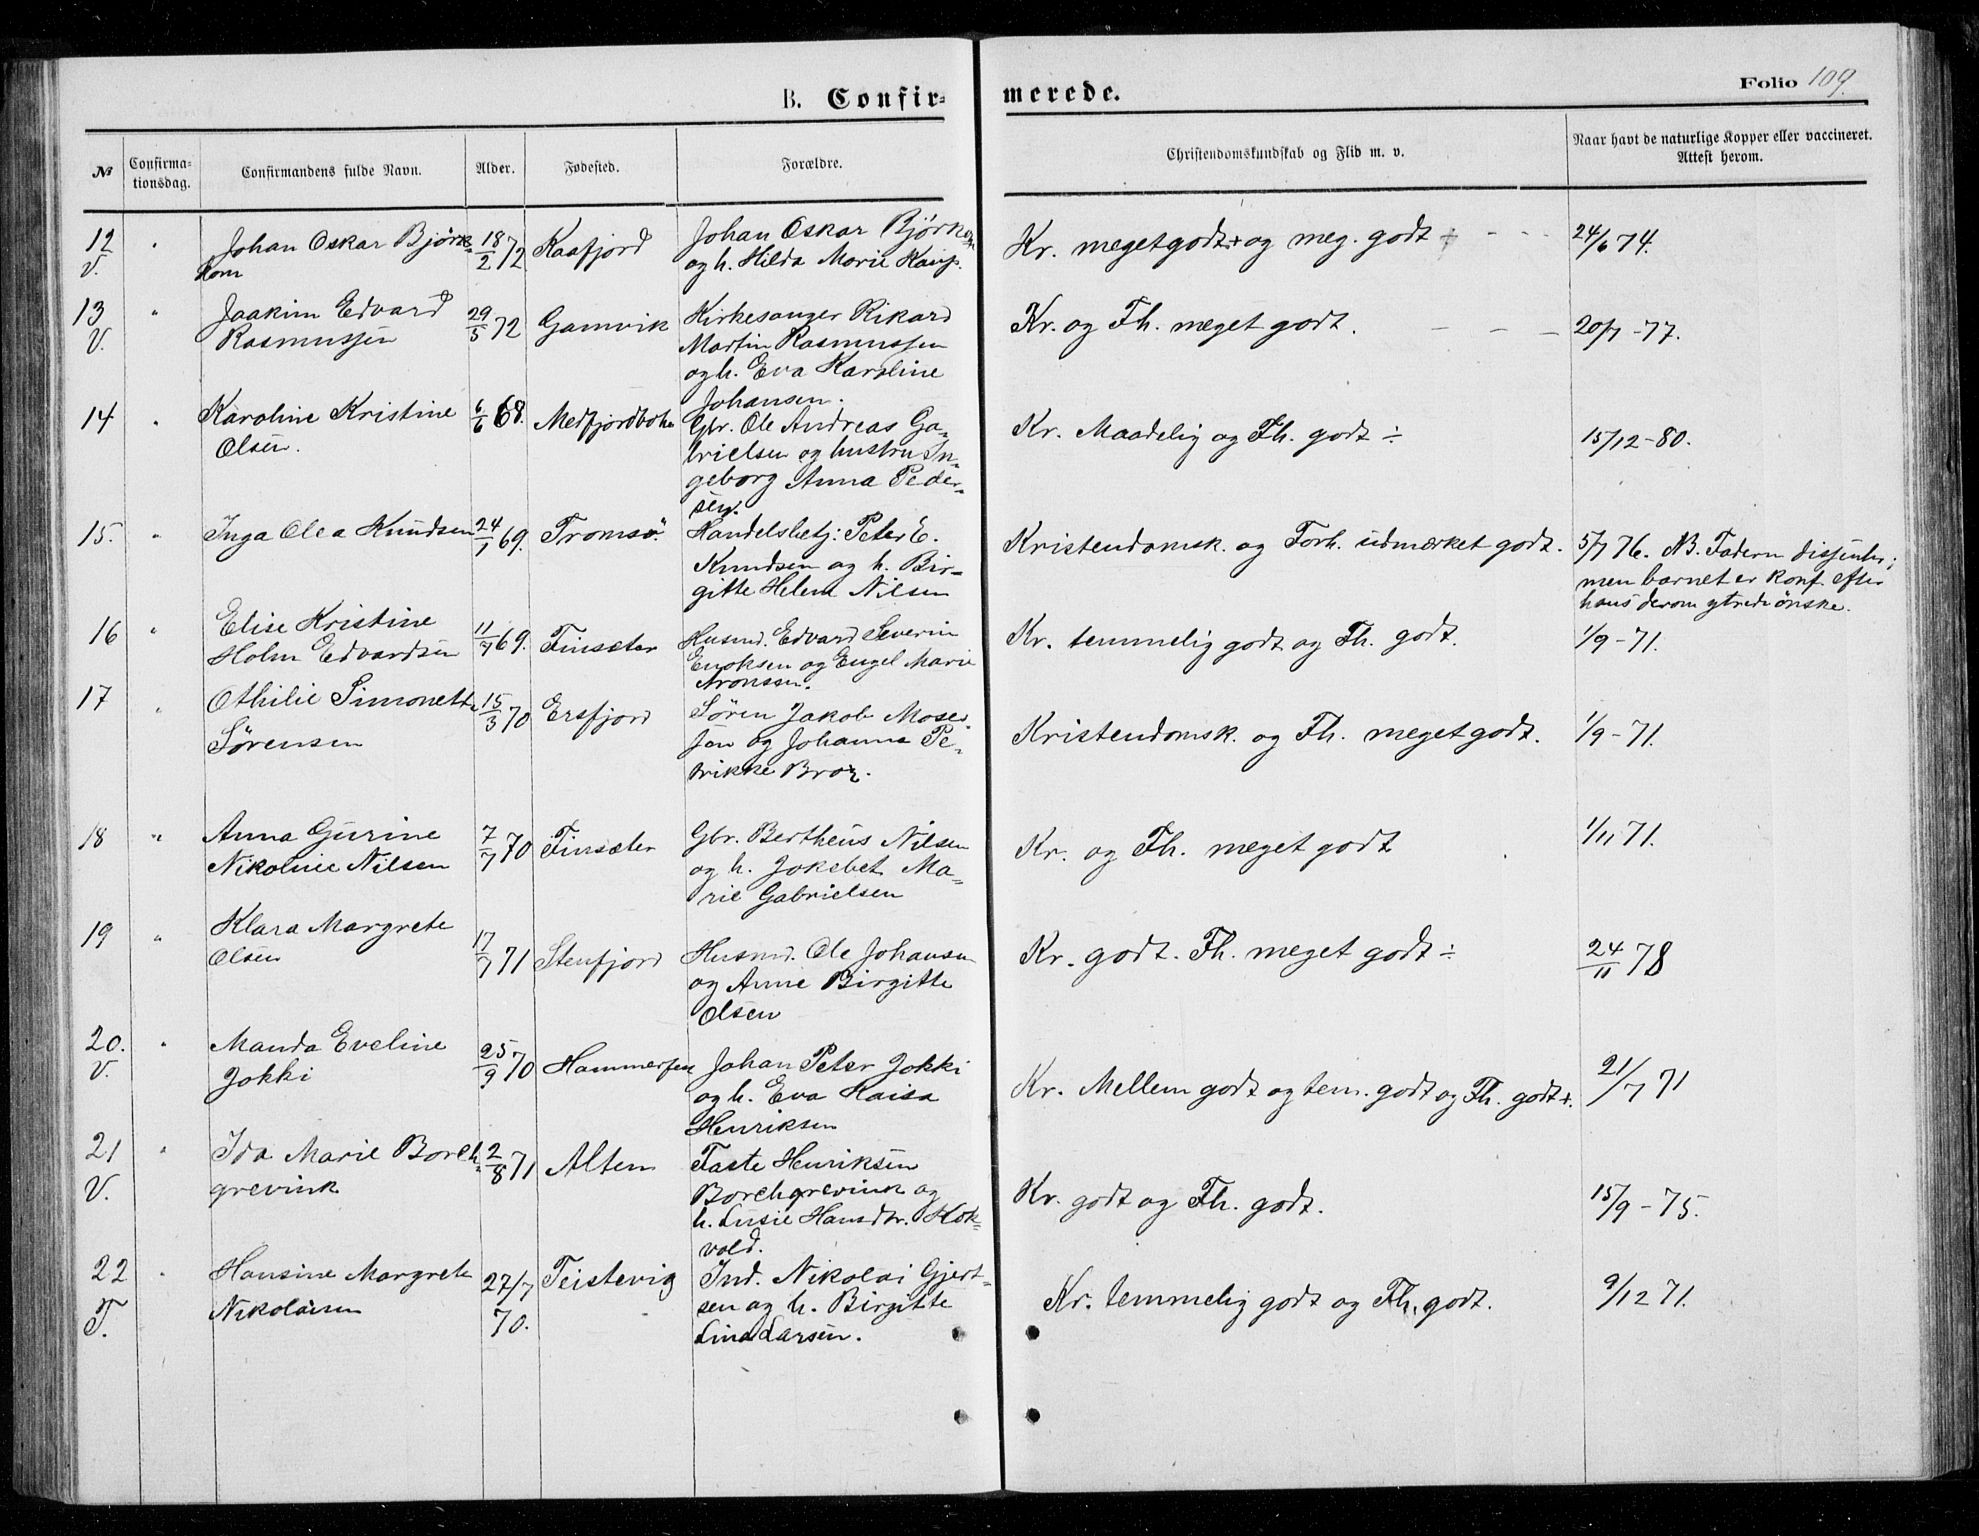 B. Confir-
merede.
Folio 109.
№
Confirma-
tionsdag.
Confirmandens fulde Navn.
Alder.
Fødested.
Forældre.
Christendomskundskab og Flid m. v.
Naar havt de naturlige Kopper eller vaccineret.
Attest herom.
12 " Johan Oskar Björk- 18/2 72 Kaafjord Johan Oskar Bjørkom Kr. meget godt + og meg. godt ÷ - - - 24/6 74.
V. kom og h. Hilda Marie Kaup.
13 " Joakim Edvard 29/5 72 Gamvik Kirkesanger Rikard Kr. og Th. meget godt. - - - 20/7 - 77.
V. Rasmussen Martin Rasmussen
og h. Eva Karoline
Johansen.
14 " Karoline Kristine 6/6 68. Medfjordbotn Gbr. Ole Andreas Ga- Kr. Maadelig og Th. godt ÷ 15/12 - 80.
Olsen. brielsen og hustru In-
geborg Anna Peder-
sen.
15. " Inga Olea Knudsen 24/1 69. Tromsö. Handelsbetj: Peter E. Kristendomsk. og Forh. udmærket godt. 5/7 76. NB. Faderen dissenter;
Knudsen og h. Bir- men barnet er konf. efter
gitte Helena Nilsen hans derom ytrede önske.
16 " Elise Kristine 11/7 69. Finsæter Husmd. Edvard Severin Kr. temmelig godt og Th. godt. 1/9 - 71.
Holm Edvardsen Enoksen og Engel Marie
Aronssen.
17 " Othilie Simonette 15/3 70 Ersfjord Søren Jakob Moses- Kristendomsk. og Th. meget godt. 1/9 - 71.
Sørensen sen og Johanna Pe-
trikke Brox.
18 " Anna Gurine 7/7 70 Finsæter Gbr. Bertheus Nilsen Kr. og Th. meget godt 1/11 71.
Nikoline Nilsen og h. Jokebet Ma-
rie Gabrielsen
19 " Klara Margrete 17/7 71 Stenfjord Husmd. Ole Johansen Kr. godt. Th. meget godt ÷ 24/11 78
Olsen og Anne Birgitte
Olsen
20. " Manda Eveline 25/9 70 Hammerfest Johan Peter Jokki Kr. Mellem godt og tem. godt og Th. godt +. 21/7 71
V. Jokki og h. Eva Kaisa
Henriksen
21 " Ida Marie Borch- 2/8 71 Alten Faste Henriksen Kr. godt og Th. godt. 15/9 - 75.
V. grevink Borchgrevink og
h. Lusie Hansdtr. Kok-
vold.
22 " Hansine Margrete 27/7 Teistevig Ind. Nikolai Gjert- Kr. temmelig godt og Th. godt. 9/12 71.
T. Nikolaisen 70. sen og h. Birgitte
Lina Larsen.